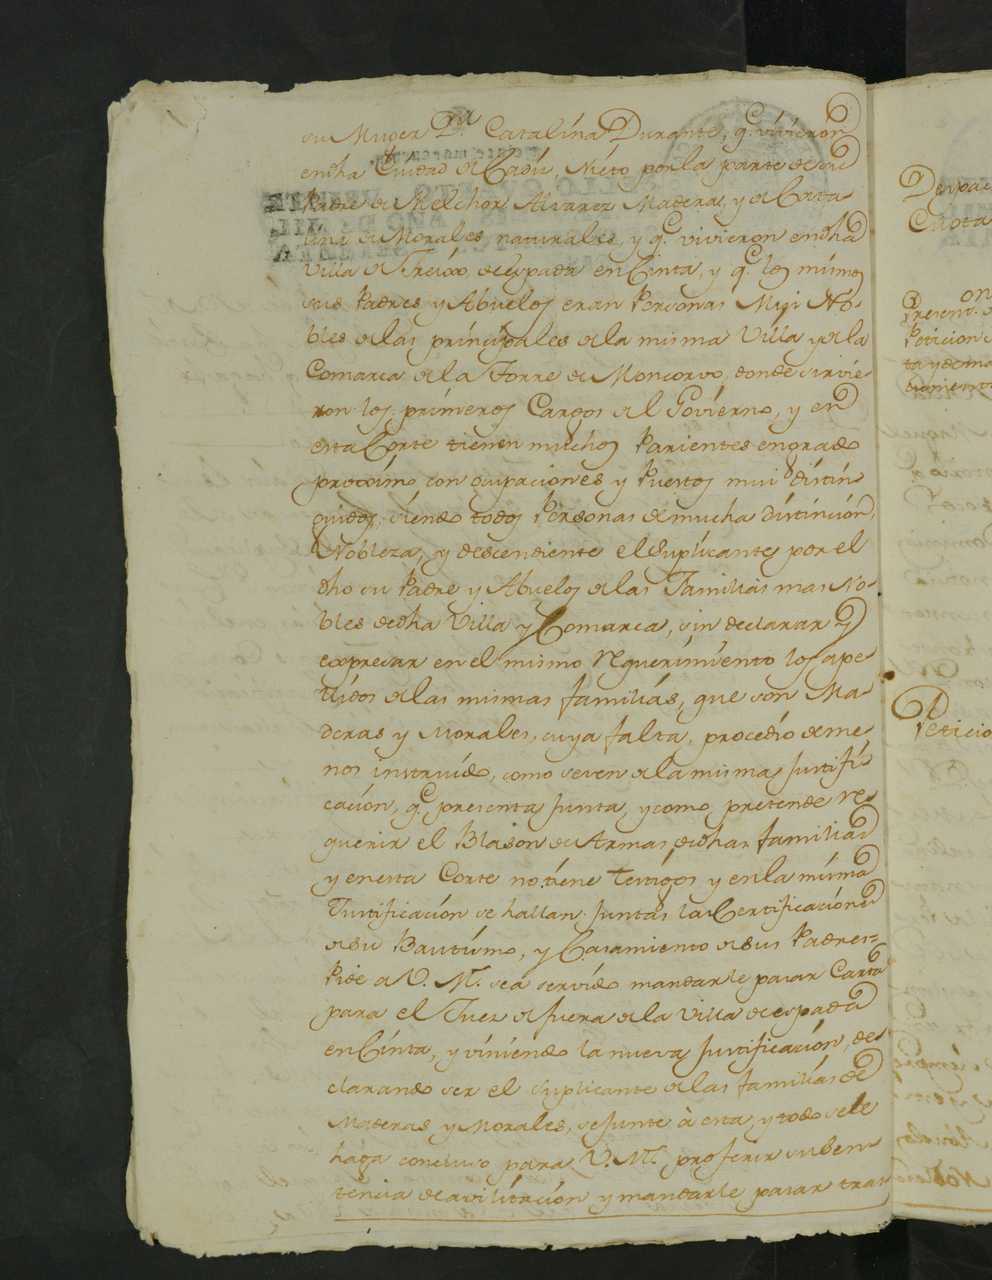 su Muger D.ª Catalina Durante, q.e vivieron
endha Ciudad de Cadiz, Nieto por la parte de su
Padre de Melchor Alvarez Madera, y de Cata-
lina de Morales naturales, y q.e vivieron endha
Villa de Freixo, de espada en Cinta, y q.e los mismos
sus Padres, y Abuelos eran Personas Mui No-
bles de las principales de la misma Villa y de la
Comarca de la Torre de Moncorvo, donde sirvie-
ron los primeros Cargos del Govierno, y en
esta Corte tienen muchos Parientes engrado
proximo con ocupaciones y Puestos mui distin-
guidos, siendo todos Personas de mucha distincion,
Nobleza, y descendiente el Suplicante por el
dho su Padre y Abuelos de las Familias mas No-
bles de dha Villa y Comarca, sin declarar y
expresar en el mismo requerimiento los ape-
llidos de las mismas familias, que son Ma-
deras y Morales, cuya falta, procedió de me-
nos instruido, como se ven de la misma Justifi-
cación, q.e presenta Junta, y como pretende re-
querir el Blason de Armas, de dhas familias
y en esta Corte no tiene testigos y en la misma
Justificación se hallan Juntas las Certificaciones
de su Bautismo, y Casamiento de sus Padres=
Pide a V. M. sea servido mandarle pasar Carta
para el Juez de fuera de la Villa de espada
en Cinta, y viniendo la nueva Justificación, de-
clarando ser el Suplicante de las familias de
Maderas y Morales, se Junte à esta, y todo se le
haga concluso para V. M. proferir su Sen-
tencia de avilitación y mandarle pasar tras
Despac
Carta
on
Present.
Peticion
ta y dema
Peticio